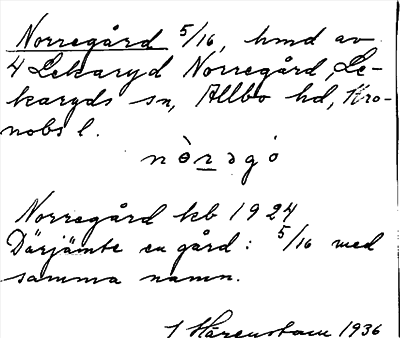 Norregård 5/16, hmd av
4 Lekaryd Norregård, Le-
karyds sn, Allbo hd, Kro-
nobs l.
nò̱rəgó
Norregård kb 1924
Därjämte en gård: 5/16 med
samma namn.
J Hårenstam 1936